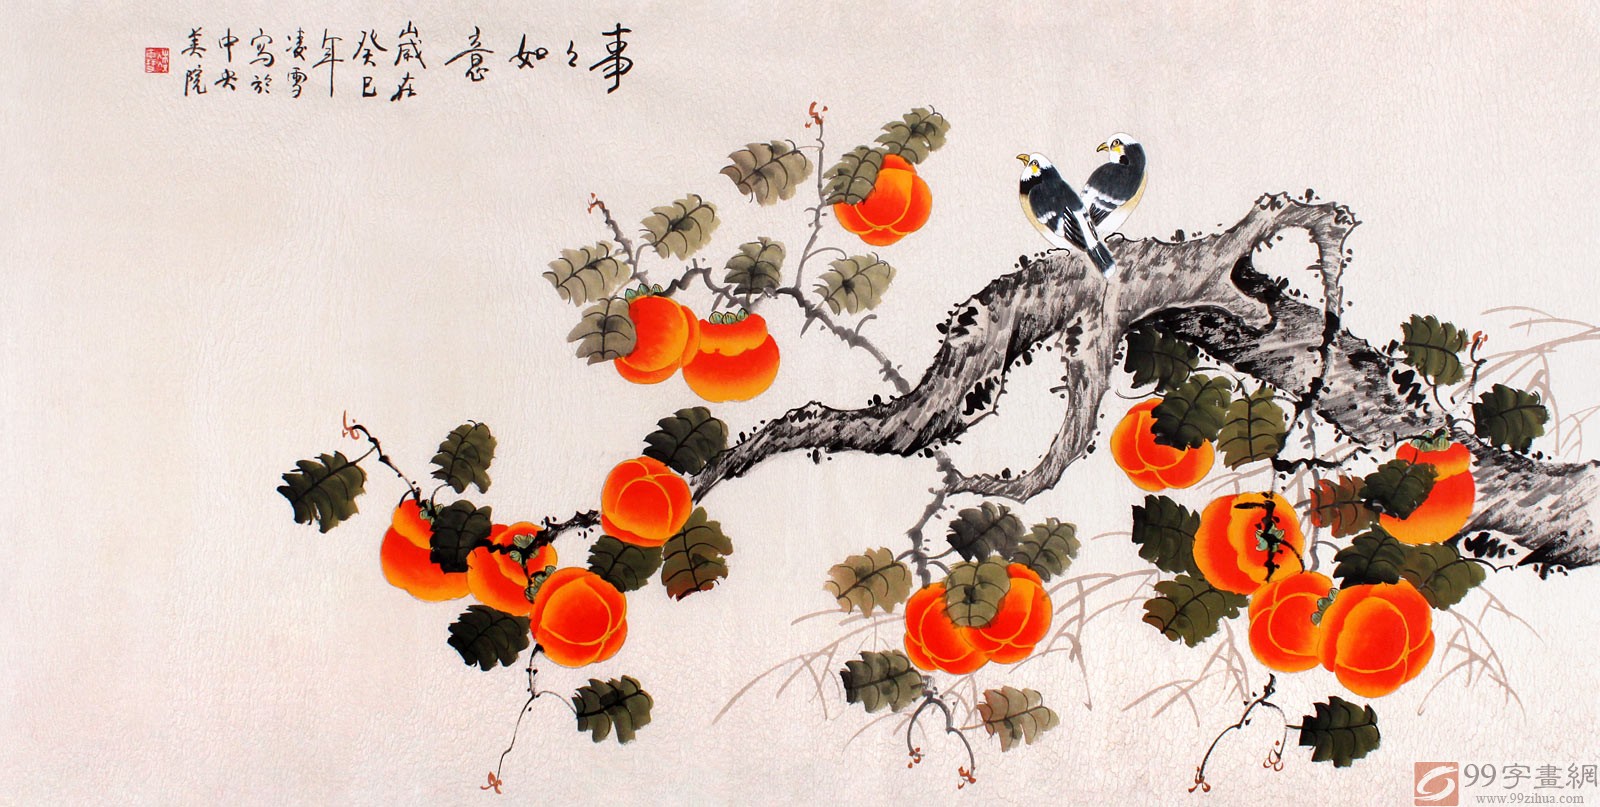 事々如意
歲在
癸巳
年
凌雪
寫於
中央
美院
99字畫網
www.99zihua.com